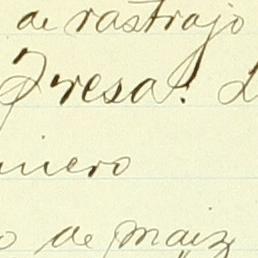 de rastrojo
Fresa. L
inero
o de maiz